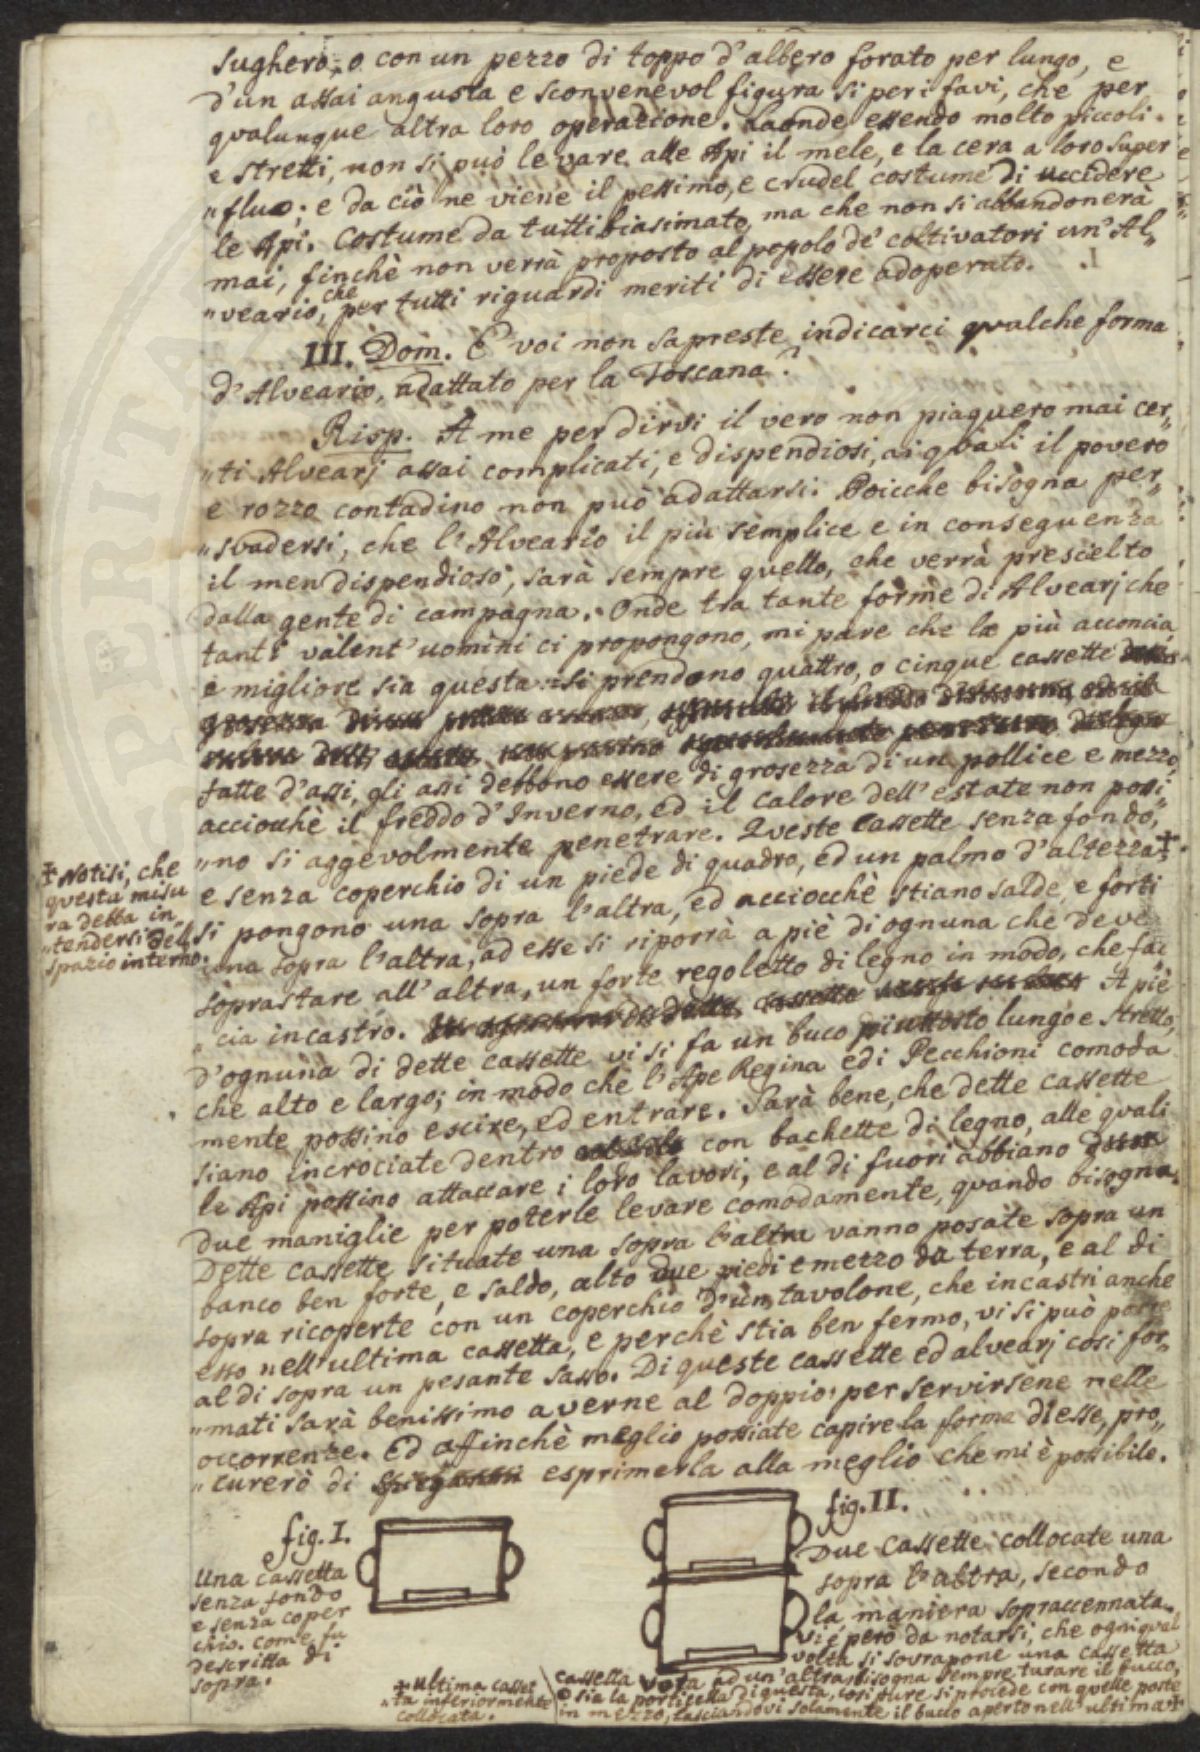 sughero, o con un pezzo di toppo d'albero forato per lungo, e
d'un assai angusta e sconvenevol figura si per i favi, che per
qualunque altra loro operazione. Laonde essendo molto piccoli.
e stretti, non si può levare alle Api il mele, e la cera a loro super
"fluo; e da ciò ne viene il pessimo, e crudel costume di uccidere
le Api. Costume da tutti biasimato, ma che non si abbandonerà
mai, finchè non verrà proposto al popolo de' coltivatori un' Al"
"veario, che per tutti riguardi meriti di essere adoperato.
III. Dom. E voi non sapreste indicarci qualche forma
d'Alveario, adattato per la Toscana?
Risp. A me per dirvi il vero non piaquero mai cer"
"ti Alvearj assai complicati, e dispendiosi, ai quali il povero
e rozzo contadino non può adattarsi. Poicche bisogna per"
"svadersi, che l'Alveario il più semplice e in conseguenza
il men dispendioso, sarà sempre quello, che verrà prescielto
dalla gente di campagna. Onde tra tante forme di Alvearj che
tanti valent' uomini ci propongono, mi pare che la più acconcia,
e migliore sia questa: si prendono quattro, o cinque cassette
fatte d'assi, gli assi debbono essere di grosezza di un pollice e mezzo,
acciocchè il freddo d'Inverno, ed il calore dell'estate non possi"
"no si aggevolmente penetrare. Queste Cassette senza fondo,
e senza coperchio di un piede di quadro, ed un palmo d'altezza ‡.
si pongono una sopra l'altra, ed acciocchè stiano salde, e forti
una sopra l'altra, ad esse si riporrà a piè di ognuna che deve
soprastare all'altra, un forte regoletto di legno in modo, che fac
"cia incastro. A piè
d'ognuna di dette cassette vi si fa un buco piuttosto lungo e stretto,
che alto e largo; in modo che l'Ape Regina ed i Pecchioni comoda
mente possino escire, ed entrare. Sarà bene, che dette cassette
siano incrociate dentro con bachette di legno, alle quali
le Api possino attaccare i loro lavori, e al di fuori abbiano
due maniglie per poterle levare comodamente, quando bisogna.
Dette cassette situate una sopra l'altra vanno posate sopra un
banco ben forte, e saldo, alto due piedi e mezzo da terra, e al di
sopra ricoperte con un coperchio d'un tavolone, che incastri anche
esso nell'ultima cassetta, e perchè stia ben fermo, vi si può porre
al di sopra un pesante sasso. Di queste cassette ed alvearj cosi for"
"mati sarà benissimo averne al doppio, per servirsene nelle
occorrenze. Ed affinchè meglio possiate capire la forma d'esse, pro"
"curerò di esprimerla alla meglio che mi è possibile.
‡ Notisi, che
questa misu
ra debba in
"tendersi dell
spazio interno.
fig. I.
Una cassetta
senza fondo
e senza coper
chio. come fu
descritta di
sopra.
fig. II.
Due cassette collocate una
sopra l'altra, secondo
la maniera sopraccennata.
vi è però da notarsi, che ogniqual
volta si sovrapone una cassetta
cassetta vota ad un'altra bisogna sempre turare il bucco,
o sia la porticella di questa, cosi pure si procede con quelle poste
in mezzo, lasciandovi solamente il buco aperto nell'ultima ‡
‡ ultima casset
"ta inferiormente
collocata.
SPERITAT